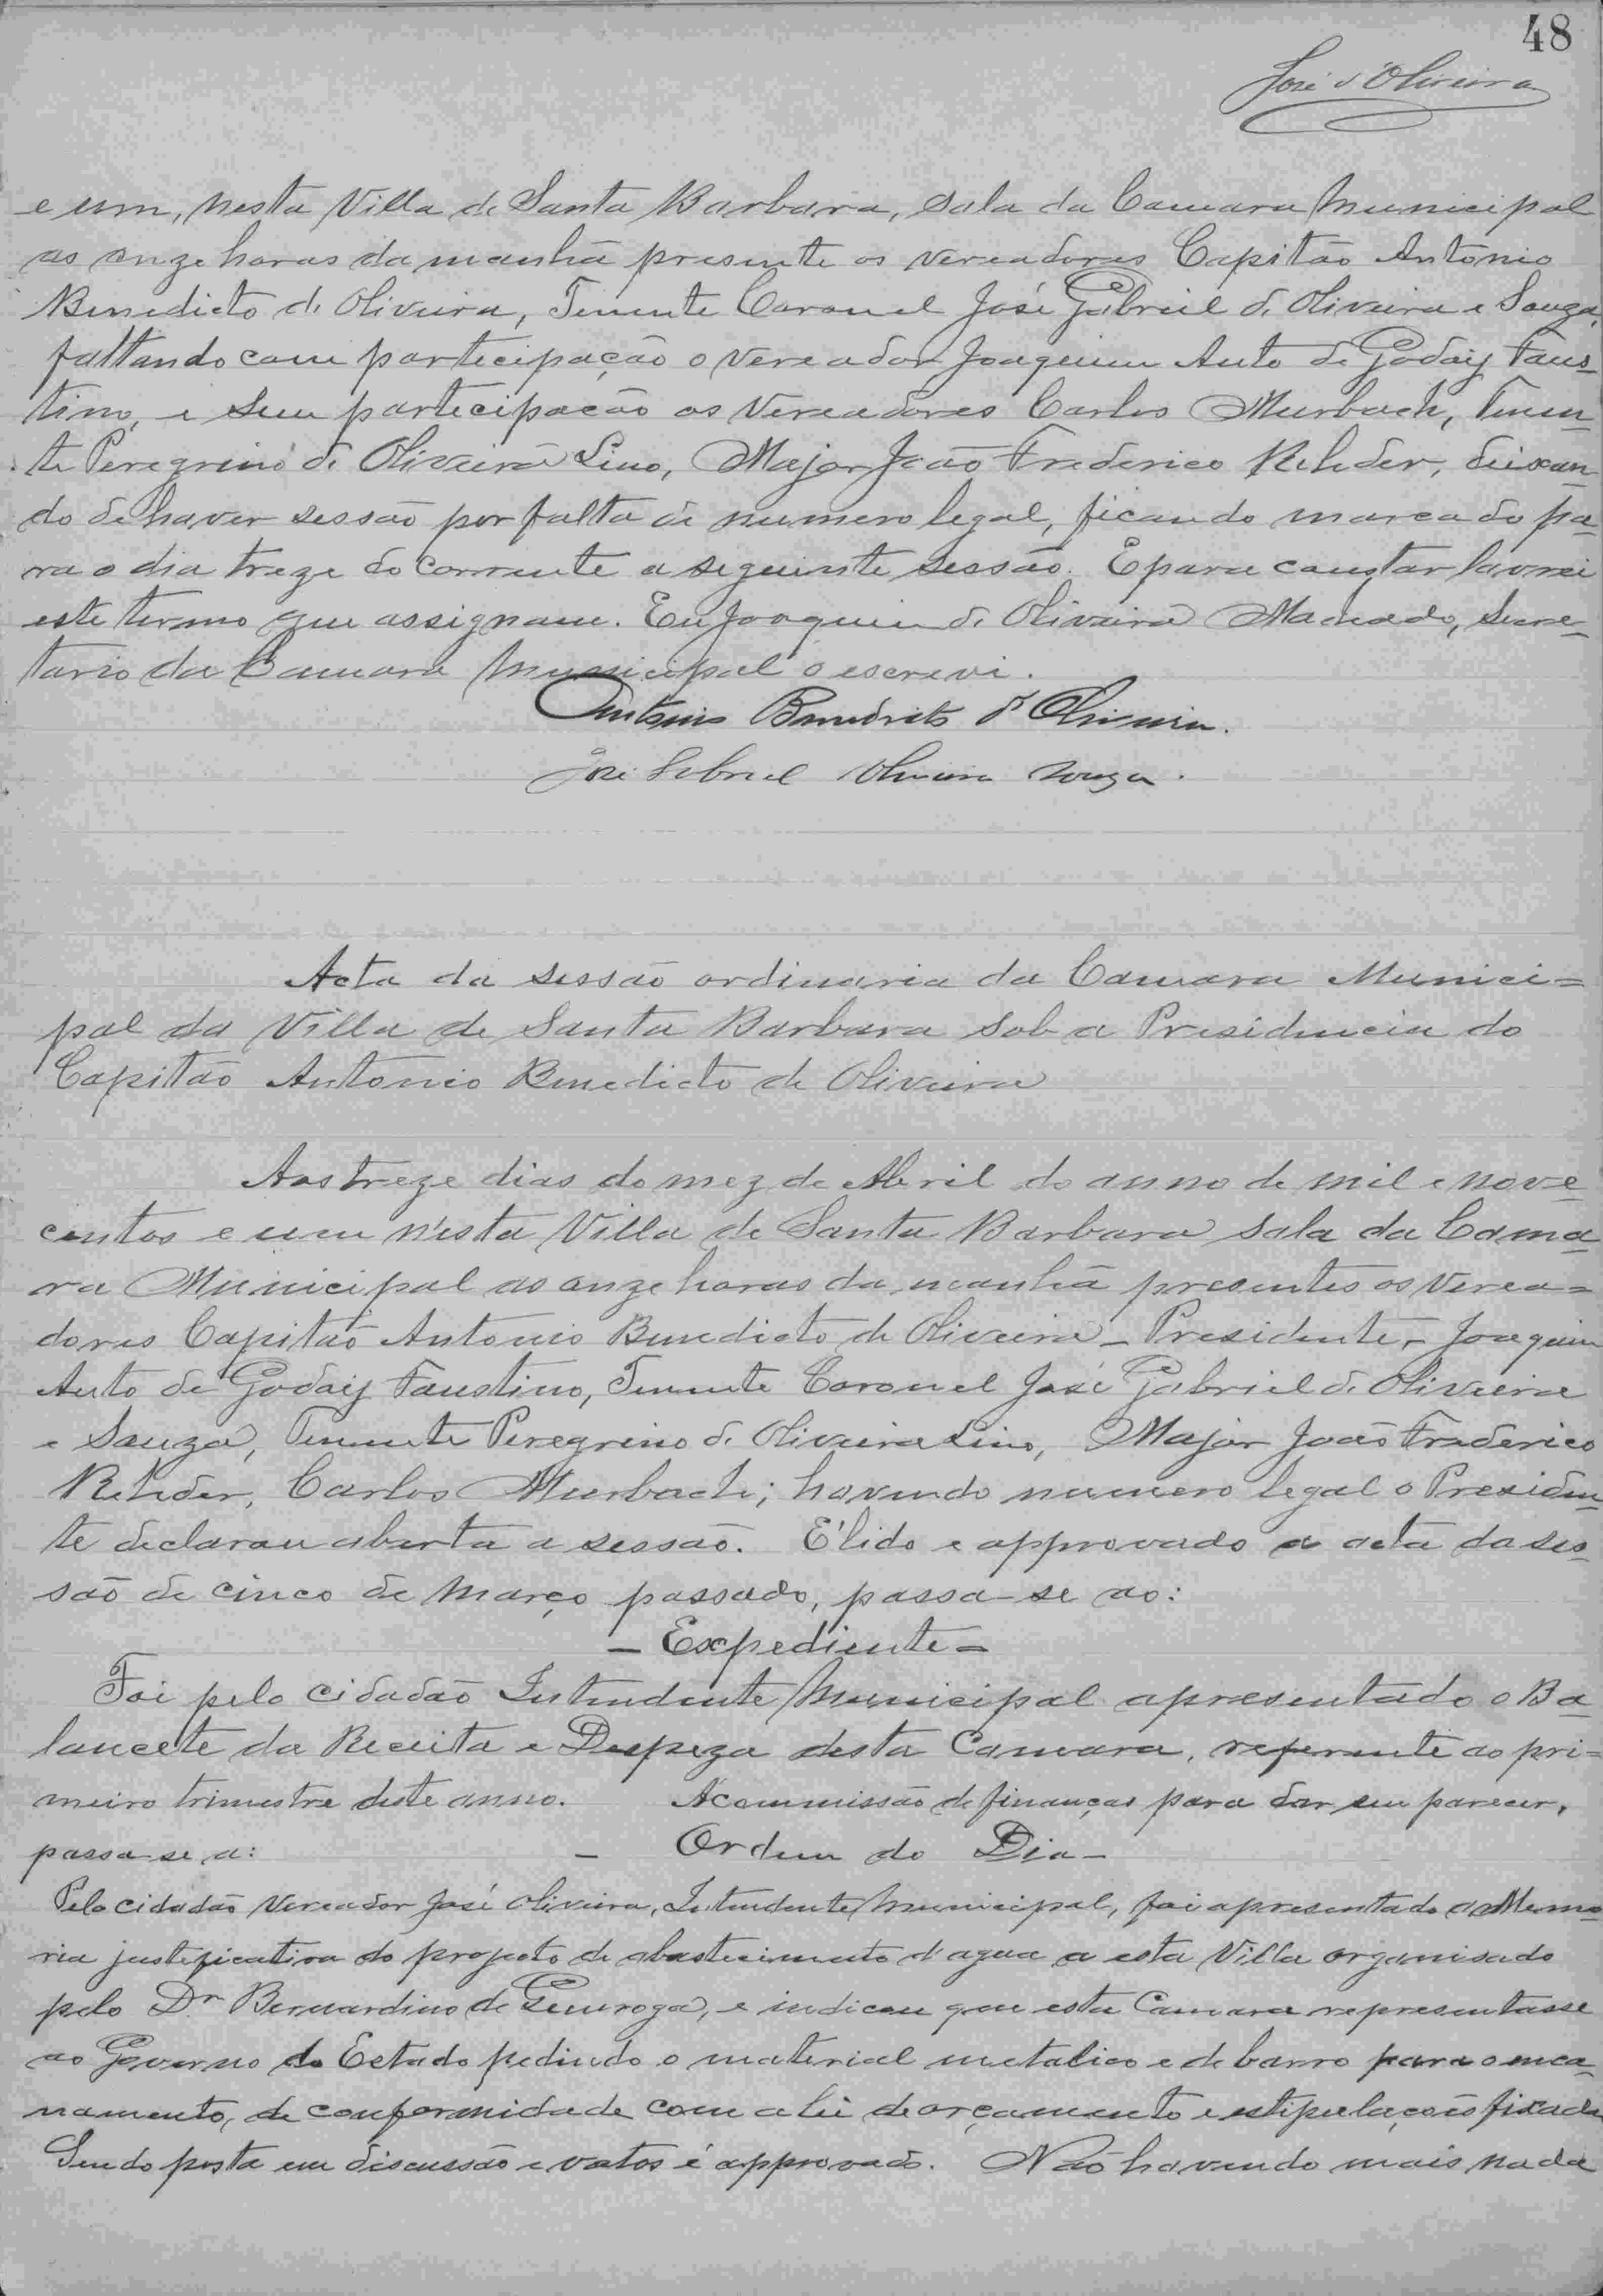 48
José d'Oliveira
e um, nesta Villa de Santa Barbara, sala da Camara Municipal
as onze horas da manhã presente os vereadores Capitão Antonio
Benedicto de Oliveira, Tenente Coronel José Gabriel de Oliveira e Souza,
faltando com participação o vereador Joaquim Auto de Godoy Faus-
tino, e sem participação os Vereadores Carlos Murbach, Tenen-
te Peregrino de Oliveira Lino, Major João Frederico Rehder, deixan-
do de haver sessão por falta de numero legal, ficando marcado pa-
ra o dia treze do corrente a seguinte sessão. E para constar lavrei
este termo que assignam. Eu Joaquim de Oliveira Machado, Secre-
tario da Camara Municipal o escrevi.
Antonio Benedicto d'Oliveira.
José Gabriel Oliveira Souza.
Acta da sessão ordinaria da Camara Munici=
pal da Villa de Santa Barbara sob a Presidencia do
Capitão Antonio Benedicto de Oliveira
Aos treze dias do mez de Abril do anno de mil e nove
centos e um n'esta Villa de Santa Barbara sala da Cama
ra Municipal as onze horas da manhã presentes os Verea=
dores Capitão Antonio Benedicto de Oliveira - Presidente, - Joaquim
Auto de Godoy Faustino, Tenente Coronel José Gabriel de Oliveira
e Souza, Tenente Peregrino de Oliveira Lino, Major João Frederico
Rehder, Carlos Murbach; havendo numero legal o Presiden-
te declarou aberta a sessão. E' lido e approvado a acta da ses-
são de cinco de Março passado, passa-se ao:
- Expediente =
Foi pelo cidadão Intendente Municipal apresentado o Ba
lancete da Receita e Despeza desta Camara, referente ao pri=
meiro trimestre deste anno. A commissão de finanças para dar seu parecer,
passa-se a: - Ordem do Dia -
Pelo cidadão Vereador José Oliveira, Intendente Municipal, foi apresentado a Memo
ria justificativa do projecto de abastecimento d'agua a esta Villa organisado
pelo Dr. Bernardino de Queiroga, e indicou que esta Camara representasse
ao Governo do Estado pedindo o material metalico e de barro para o enca
namento, de conformidade com a lei de orçamento e estipulações fixada
Sendo posta em discussão e votos é approvado. Não havendo mais nada